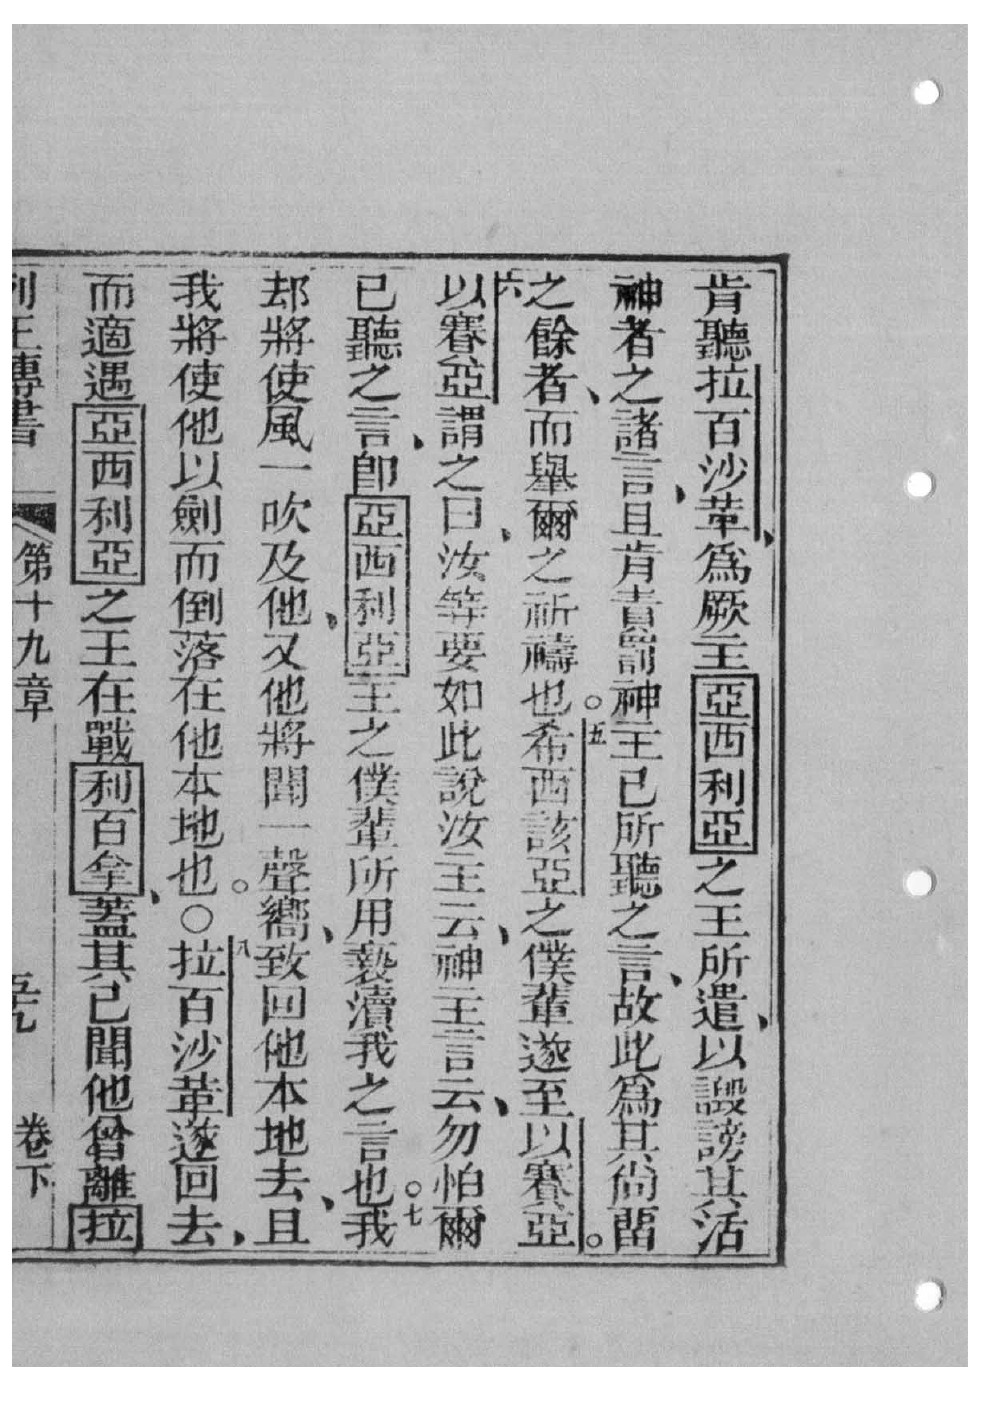 肯聽拉百沙革、爲厥主亞西利亞之王所遣、以譭謗其活
神者之諸言、且肯責罰神主已所聽之言、故此爲其尚畱
之餘者、而舉爾之祈禱也。五希西該亞之僕輩遂至以賽亞。
六以賽亞謂之曰、汝等要如此說汝主云、神主言云、勿怕爾
已聽之言、卽亞西利亞王之僕輩所用褻瀆我之言也。七我
却將使風一吹及他、又他將聞一聲嚮、致回他本地去、且
我將使他以劍而倒落在他本地也。○八拉百沙革遂回去、
而適遇亞西利亞之王在戰利百拿、蓋其已聞他曾離拉
列王傳書 第十九章 卷下